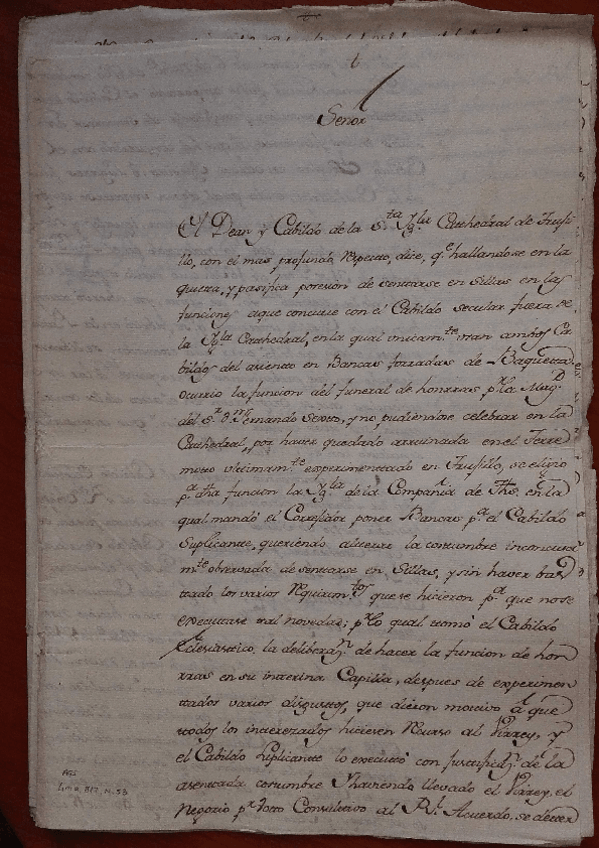 Señor
El Dean y Cabildo de la S.ta Igl.ia Cathedral de Truxi-
llo, con el mas profundo respecto, dice, q.e hallandose en la
quieta, y pasifica posesion de sentarse en Sillas en las
funciones aque concurre con el Cabildo secular fuera de
la Igl.ia Cathedral, en la qual unicam.te usan ambos Ca-
bildos del asiento en Bancas forradas de Baqueta
ocurrio la funcion del funeral de honrras p.r la Mag.d
del S.r D.n Fernando Sexto, y no pudiendose celebrar en la
Cathedral, por haver quedado arruinada en el Terre
moto ultimam.te experimentado en Truxillo, se eligio
p.a dha funcion la Igl.ia de la Compañia de Jhs, en la
qual mandó el Correxidor poner Bancas p.a el Cabildo
Suplicante, queriendo alterar la costumbre inconcusa
m.te observada de sentarse en Sillas, y sin haver bas
tado los varios Requirim.tos que se hicieron p.a que nose
executase tal novedad; p.r lo qual tomó el Cabildo
Eclesiastico, la deliberaz.n de hacer la funcion de hon
rras en su interina Capilla, despues de experimen
tados varios disgustos, que dieron motivo á que
todos los interezados hiciesen Recurso al Virrey, y
el Cabildo Suplicante lo executó con justificaz.n de la
asentada costumbre. Y haviendo llevado el Virrey, el
Negocio p.r Voto Consultivo al R.l Acuerdo, se deter
AGI
Lima, 817, N. 53